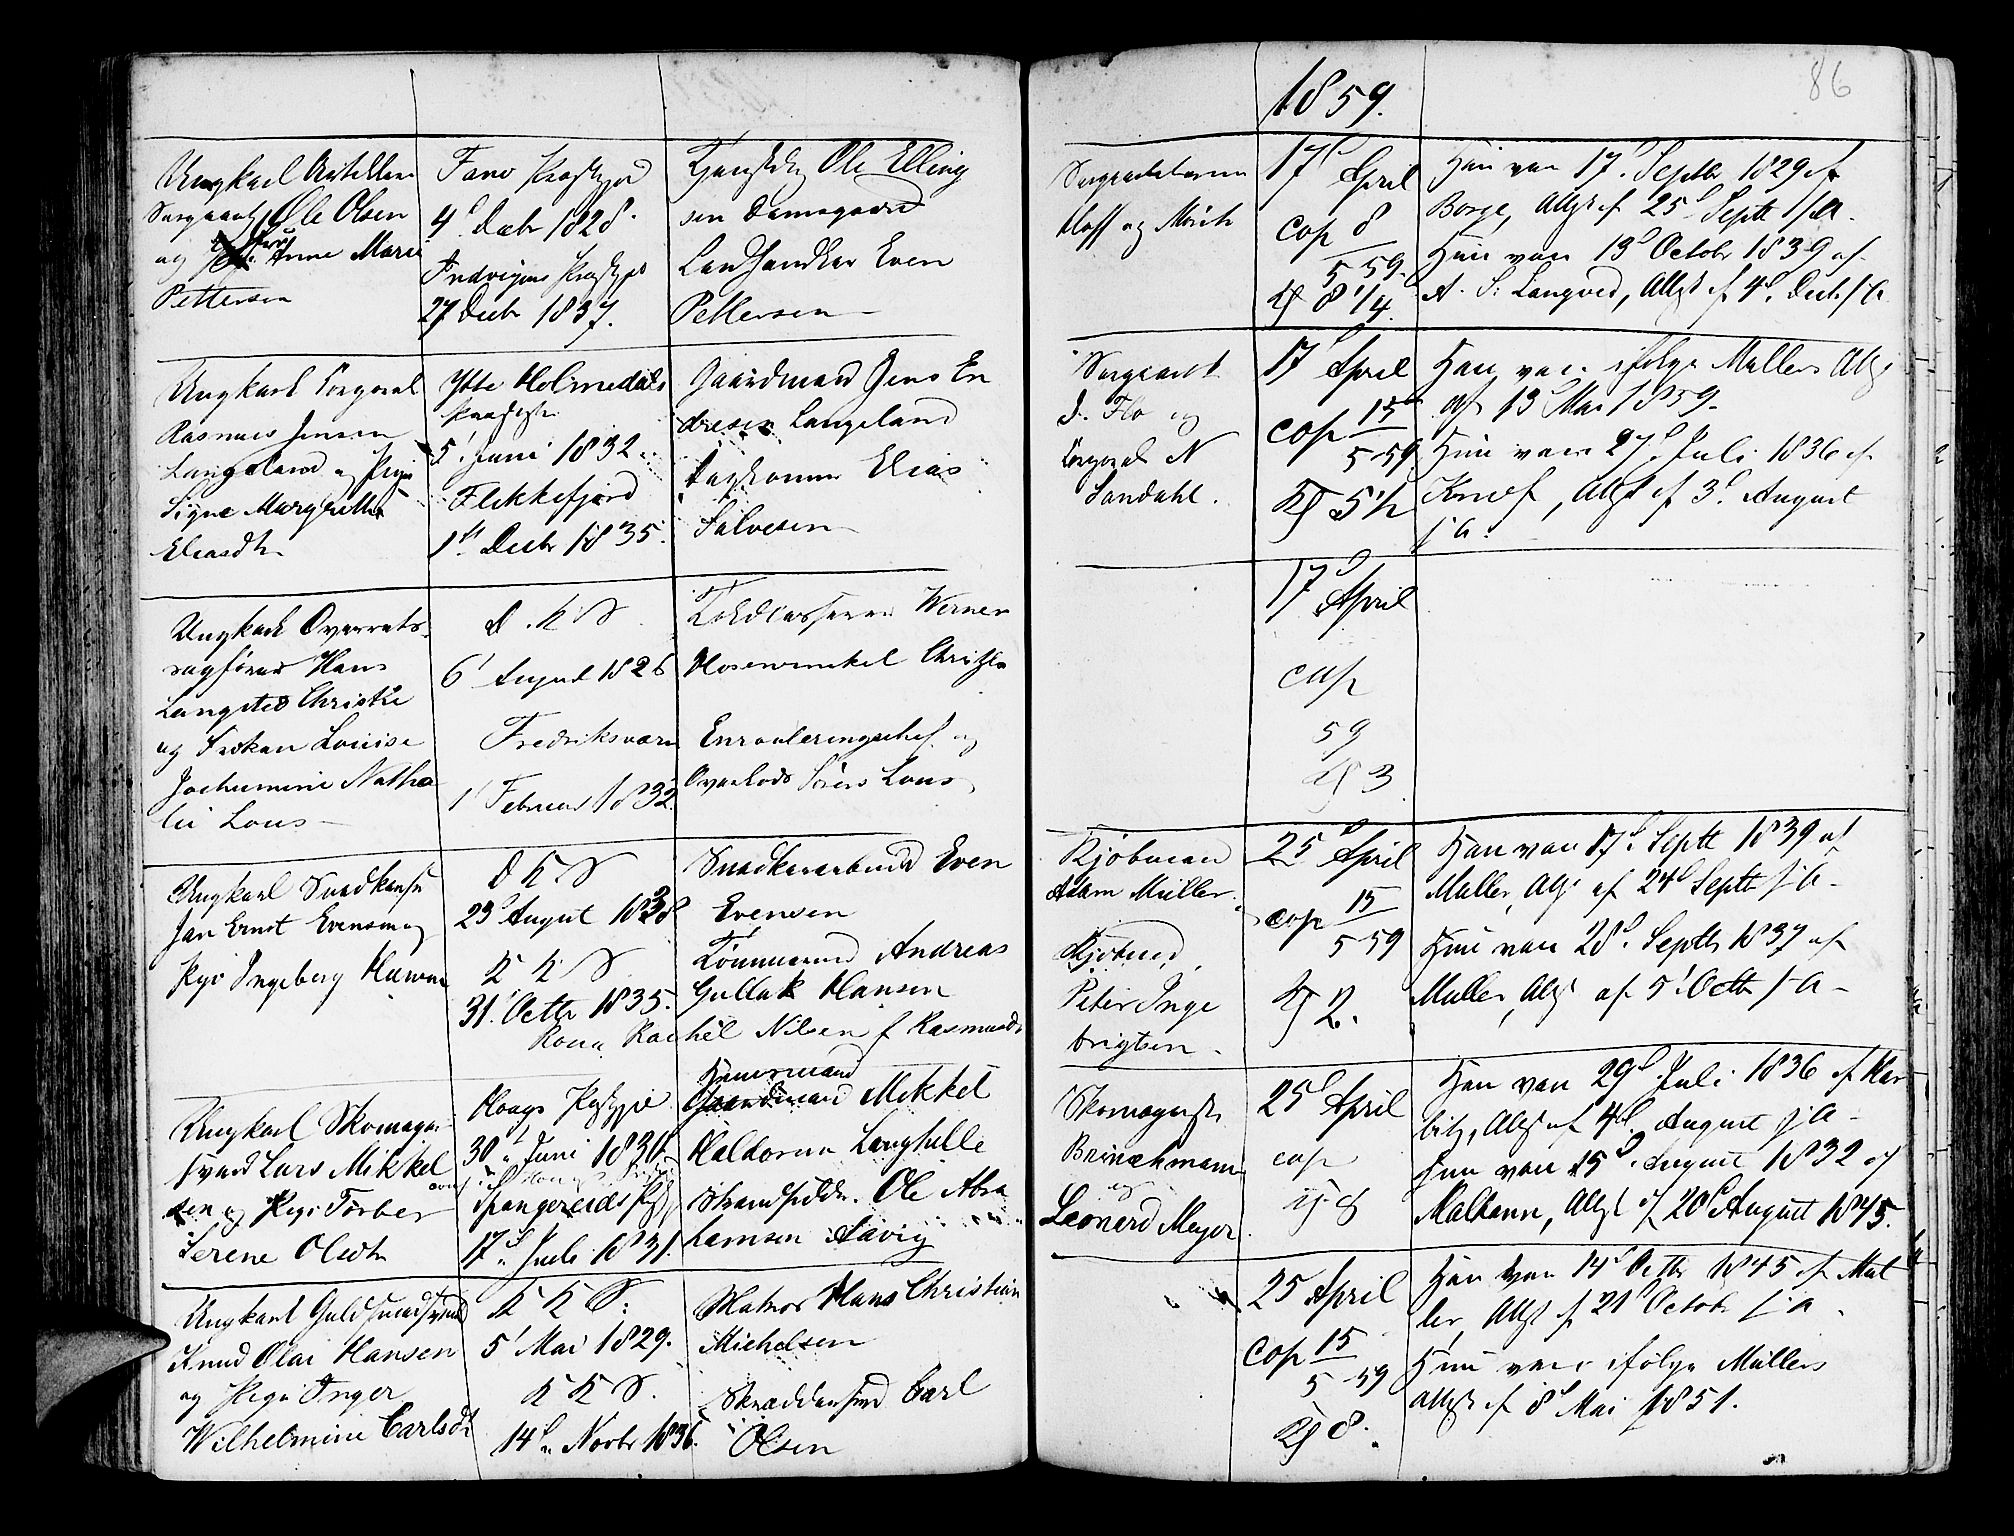 86
1859.
Ungkarl Artilleri
Sergeant Ole Olsen
og Anne Marie
Pettersen
Fanø Præstegjd
4d Decbr 1828.
Præstegjd
27 Decbr 1837.
Ole Elling
sen Damsgaard
Landhandler Even
Pettersen
Sergeanterne
Hoff og
17d April
cop 8
5 59.
8 1/4.
Han vac 17d Septbr 1829 af
Borge, Attst af 25d Septbr s. A.
Hun vac 13d Octobr 1839 af
A. S. Langved, Attst af 4d Decb. s. A.
Ungkarl Corporal
Rasmus Jensen
Langeland og Pige
Signe Margrethe
Eliasdtr
Ytre Holmedals
Præstegjd
5' Juni 1832
Flekkefjord
1st Decbr 1835.
Gaardmand Jens En
dresen Langeland
Elias
Salvesen
Sergeant
J. Flo og
Corporal N
Sandahl.
17d April
cop 15
5 59
5 1/2
Han vac ifølge Mullers Attst
af 13d Mai 1859.
Hun vac 27d Juli 1836 af
Knief, Attst af 3d August
s. A.
Ungkarl Overrets-
sagfører Hans
Langsted Christie
og Frøken Louise
Jochumine Natha
lie Lous
D. K. S.
6' August 1826
Fredriksværn
1' Februar 1832.
Toldkasserer Werner
Hosewinckel Christie
Enrouleringschef og
Overlods Søren Lous
17d April
cop
59
3
Ungkarl Snedkersv
Jan Ernst Evensen og
Pige Ingeborg Hansen
D. K. S.
23d August 1838
K K S
31' Octbr 1835.
Snedkerarbeider Even
Evensen
Tømmermand Andreas
Gullak Hansen
Kona Rachel Nilsen f. Rasmusdtr
Kjøbmand
Adam Müller.
Kjøbmd
Peter Inge
brigtsen
25d April
cop 15
5 59
2.
Han vac 17d Septt 1839 af
Muller, Attst af 24d Septbr s. A.
Hun vac 28d Septbr 1837 af
Muller, Attst af 5' Octbr s. A.
Ungkarl Skomager-
svend Lars Mikkel
sen og Pige Torber
Serene Olsdtr
Hougs Præstegjd
30te Juni 1830
Spangereids
17d Juli 1831.
Huusmand
Gaardmand Mikkel
Haldorsen Langhelle
Strandsidder Ole Abra
hamsen Aavig
Skomagerstr
Brinckmann
og
Leonard Meyer
25d April
cop
8
Han vac 29d Juli 1836 af Har
bitz, Attst af 4d August s. A.
Hun vac 15d August 1832 af
Malhann, Attst af 20d August 1845.
Ungkarl Guldsmedsvend
Knud Olai Hansen
og Pige Inger
Wilhelmine Carlsdt
K K S:
5' Mai 1829.
K K S.
14d Novbr 1836.
Matros Hans Christian
Michelsen
Skræddersvend Carl
Olsen
25 April
cop 15
5 59
8.
Han vac 14d Octbr 1845 af Mul
ler, Attst af 21d Octobr s. A.
Hun vac ifølge Müllers
Attst af 8d Mai 1851.